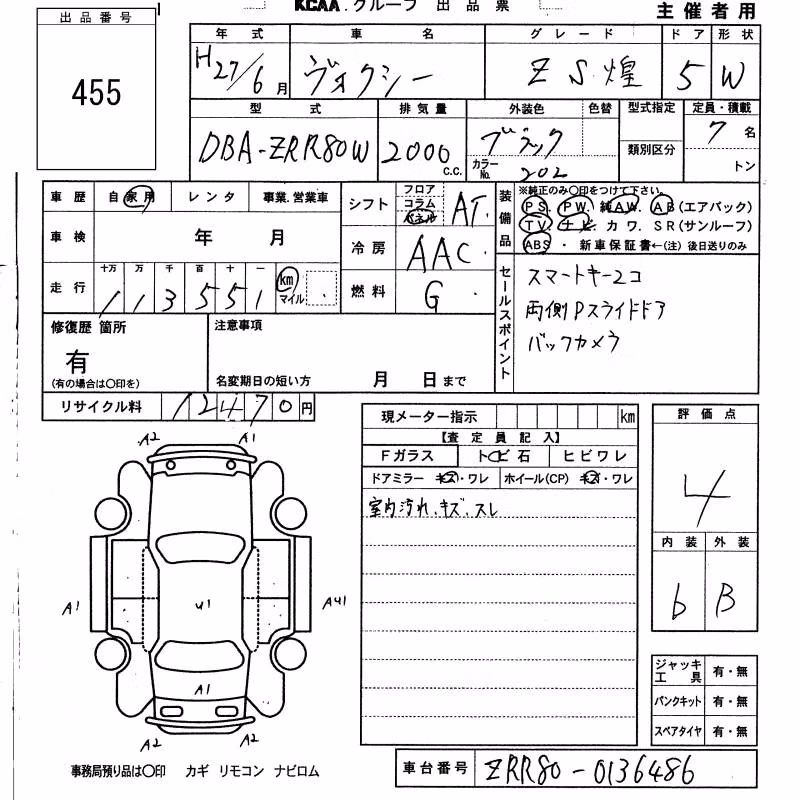 KCAA.グループ 出品票
主催者用
出品番号
455
年式 車名 グレード ドア 形状
H27/6月 ヴォクシー ZS 煌 5 W
型式 排気量 外装色 色替 型式指定 定員・積載
DBA-ZRR80W 2000 C.C. ブラック 類別区分 7名
カラーNo. 202 トン
車歴 自家用 レンタ 事業.営業車
車検 年 月
走行 十万 万 千 百 十 一
113551 km マイル
シフト フロア コラム パネル AT
冷房 AAC
燃料 G
装備品 ※純正のみ〇印をつけて下さい。
PS. PW. 純AW. AB(エアバック)
TV. ナビ カワ. SR(サンルーフ)
ABS ・ 新車保証書←(注)後日送りのみ
セールスポイント
スマートキー2コ
両側Pスライドドア
バックカメラ
修復歴 箇所
有
(有の場合は〇印を)
注意事項
名変期日の短い方 月 日まで
リサイクル料 12470円
現メーター指示 km
【査定員記入】
Fガラス トビ石 ヒビワレ
ドアミラー キズ・ワレ ホイール(CP) キズ・ワレ
室内汚れ、キズ、スレ
評価点
4
内装 外装
b B
A2 A1
A1 U1 AU1
A1
A2 A2
ジャッキ工具 有・無
パンクキット 有・無
スペアタイヤ 有・無
事務局預り品は〇印 カギ リモコン ナビロム
車台番号 ZRR80-0136486